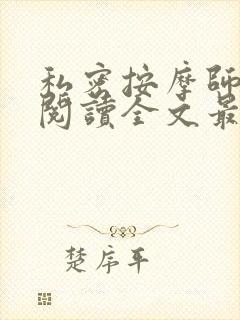 私密按摩師
閱讀全文最
楚序平